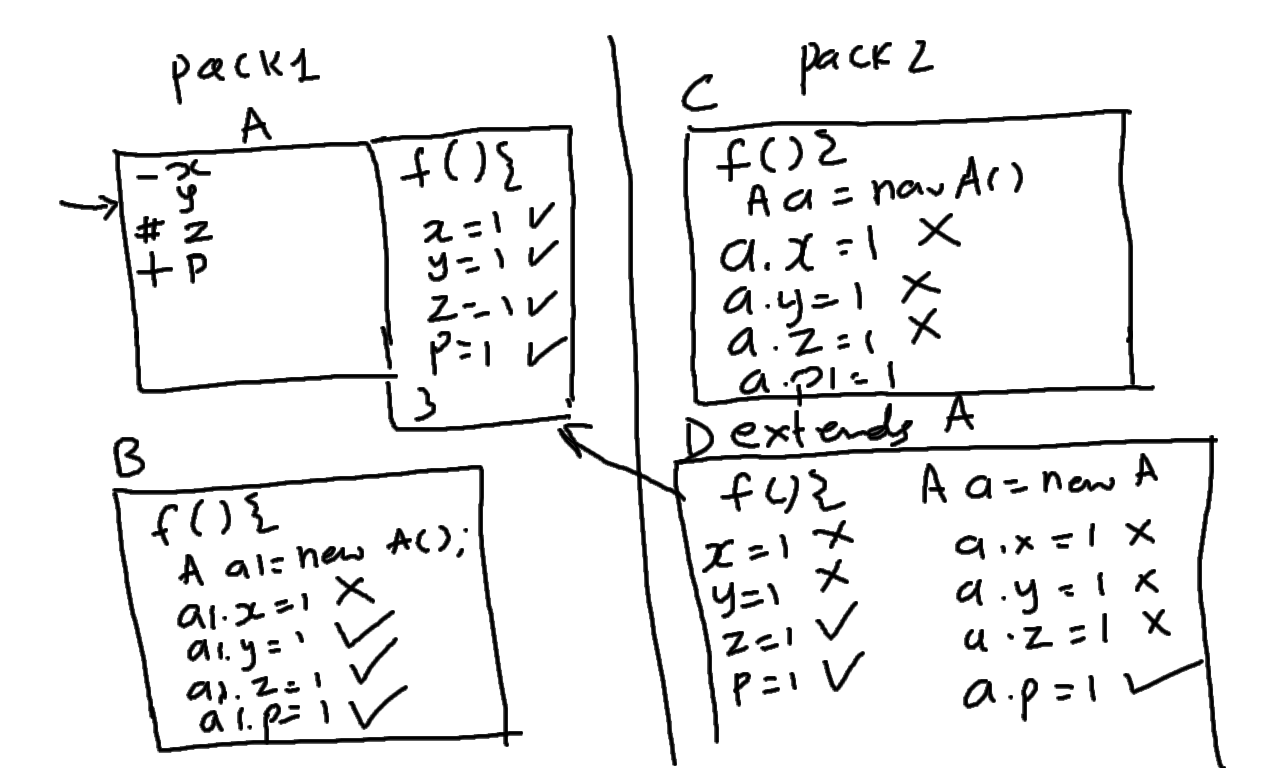 pack1
A
- x
y
# z
+ p
f(){
x=1 ✓
y=1 ✓
z=1 ✓
p=1 ✓
}
B
f(){
A a1= new A();
a1.x=1 ×
a1.y=1 ✓
a1.z=1 ✓
a1.p=1 ✓
pack2
C
f(){
A a = new A()
a.x=1 ×
a.y=1 ×
a.z=1 ×
a.p1=1
D extends A
f(){
x=1 ×
y=1 ×
z=1 ✓
p=1 ✓
A a= new A
a.x=1 ×
a.y=1 ×
a.z=1 ×
a.p=1 ✓